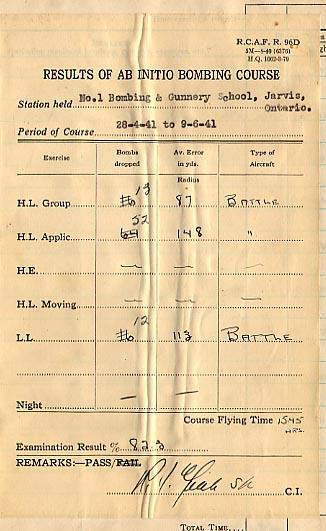 R.C.A.F. R. 96D
5M—8-40 (6376)
H.Q. 1062-3-70
RESULTS OF AB INITIO BOMBING COURSE
Station held No.1 Bombing & Gunnery School, Jarvis,
Ontario.
Period of Course 28-4-41 to 9-6-41
Exercise Bombs dropped Av. Error in yds. Type of Aircraft
Radius
H.L. Group 13 87 BATTLE
H.L. Applic 52 64 148 "
H.E. — — —
H.L. Moving — — —
L.L. 12 113 BATTLE
Night — —
Course Flying Time 1545
HRS.
Examination Result % 82.3
REMARKS:—PASS/FAIL
C.I.
TOTAL TIME